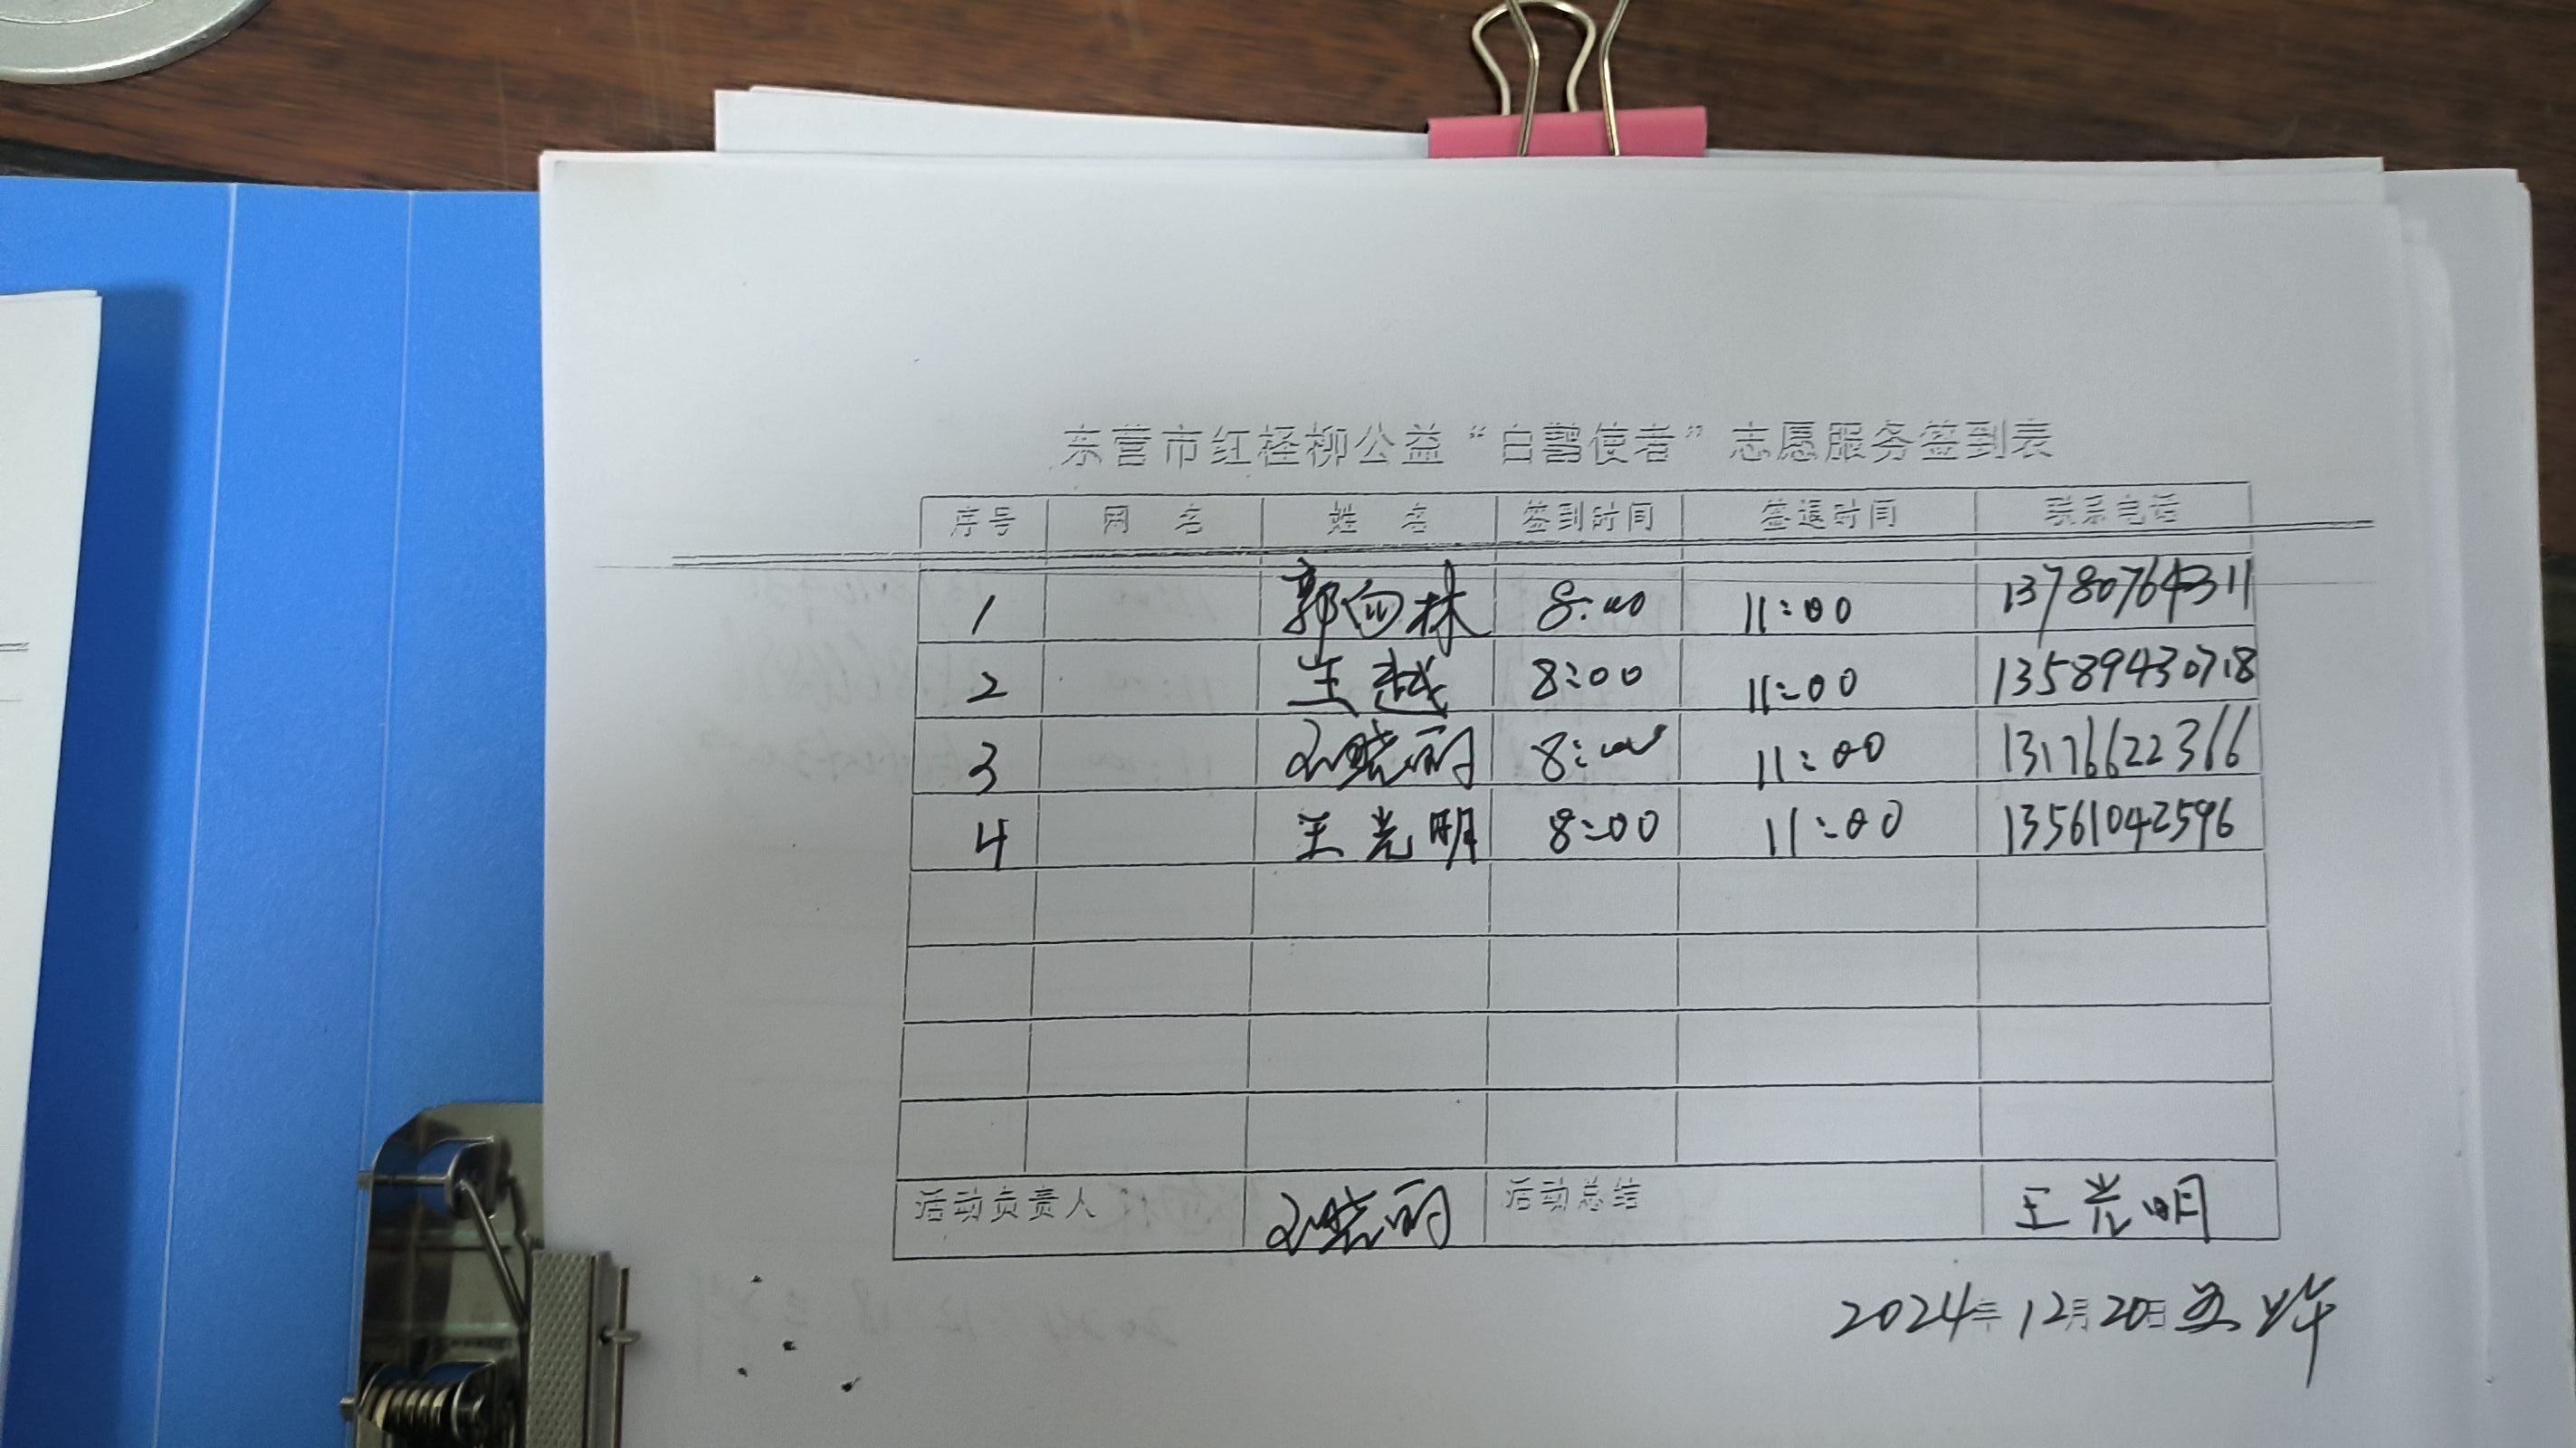 东营市红柽柳公益“白鹳使者”志愿服务签到表
序号 网 名 姓 名 签到时间 签退时间 联系电话
1 郭向林 8:00 11:00 13780764311
2 王越 8:00 11:00 13589430718
3 刘晓丽 8:00 11:00 13176622366
4 王光明 8:00 11:00 13561042596
活动负责人 刘晓丽 活动总结 王光明
2024年12月20日 上午